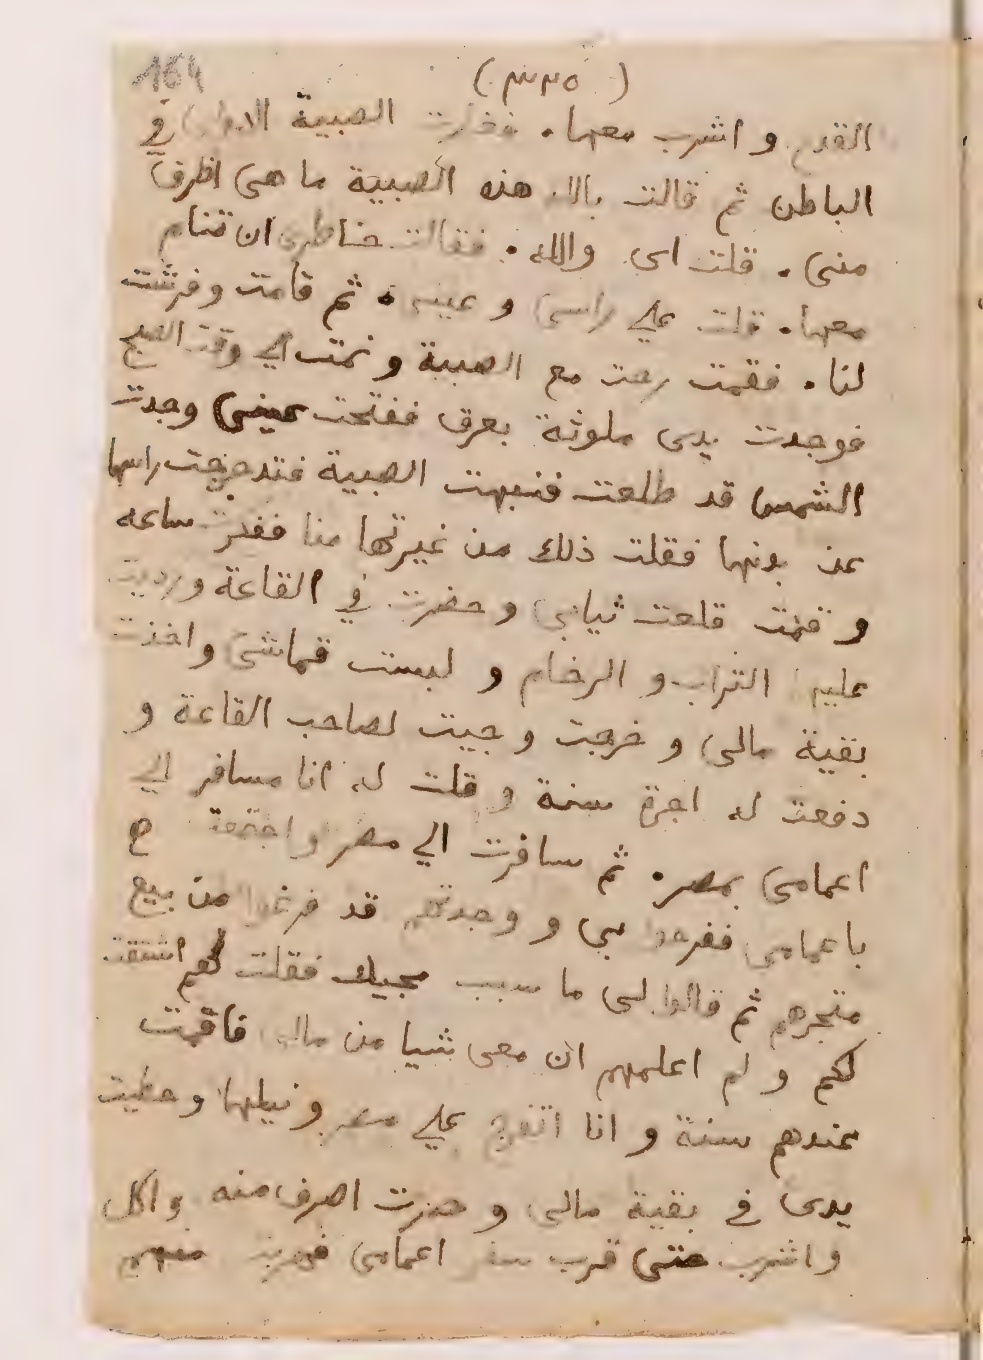 164
(٣٣٥)
القدح و اشرب معها . فغارت الصبية الاولي في
الباطن ثم قالت بالله هذه الصبية ما هي اظرف
مني . قلت اي والله . فقالت خاطري ان تنام
معها . قلت علي راسي و عيني . ثم قامت وفرشت
لنا . فقمت رحت مع الصبية و نمت الي وقت الصبح
فوجدت يدي ملوثة بعرق ففتحت عيني وجدت
الشمس قد طلعت فنبهت الصبية فتدحرجت راسها
عن بدنها فقلت ذلك من غيرتها منا ففكرت ساعه
و قمت قلعت ثيابي و حفرت في القاعة ورديت
عليها التراب و الرخام و لبست قماشي واخذت
بقية مالي و خرجت و جيت لصاحب القاعة و
دفعت له اجرة سنة و قلت له انا مسافر الي
اعمامي بمصر . ثم سافرت الي مصر واجتمعة
باعمامي ففرحوا بي و وجدتهم قد فرغوا من بيع
متجرهم ثم قالوا لي ما سبب مجيك فقلت لهم اشتقت
لكم و لم اعلمهم ان معي شيا من مالي فاقمت
عندهم سنة و انا اتفرج علي مصر ونيلها وحطيت
يدي في بقية مالي و صرت اصرف منه واكل
واشرب حتي قرب سفر اعمامي فهربت منهم